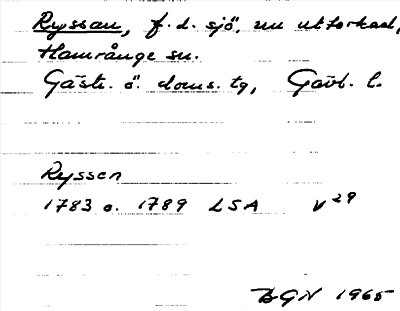 Ryssan, f.d. sjö, nu uttorkad,
Hamrånge sn.
Gästr. ö. doms. tg, Gävl. l.
Ryssen
1783 o. 1789 LSA V 29
BGN 1965